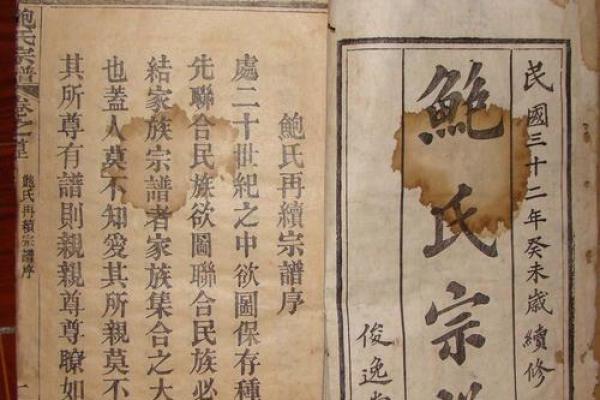 民國三十二年癸未歲續修
鮑氏宗譜
俊逸
鮑氏再續宗譜序
處二十世紀之中欲圖保存種
先聯合民族欲圖聯合民族必
結家族宗譜者家族集合之大
也蓋人莫不知愛其所親莫不
其所尊有譜則親親尊尊瞭如
鮑氏宗譜
卷之
鮑氏再續宗譜序
一